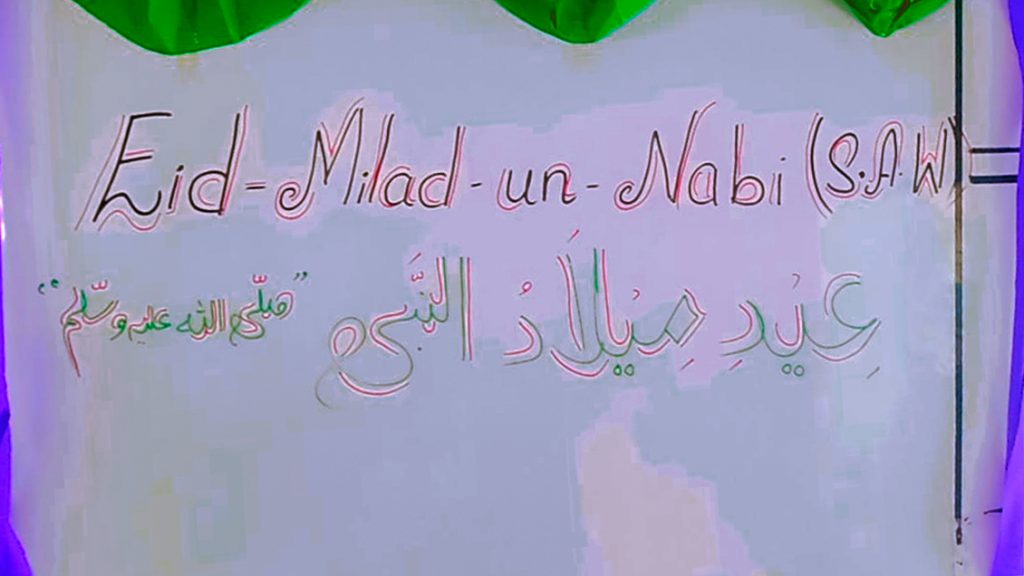 Eid-Milad-un-Nabi (S.A.W)
عِيْدِ مِيْلَادُ النَّبِی "صلّی اللّٰه علیہ وسلّم"